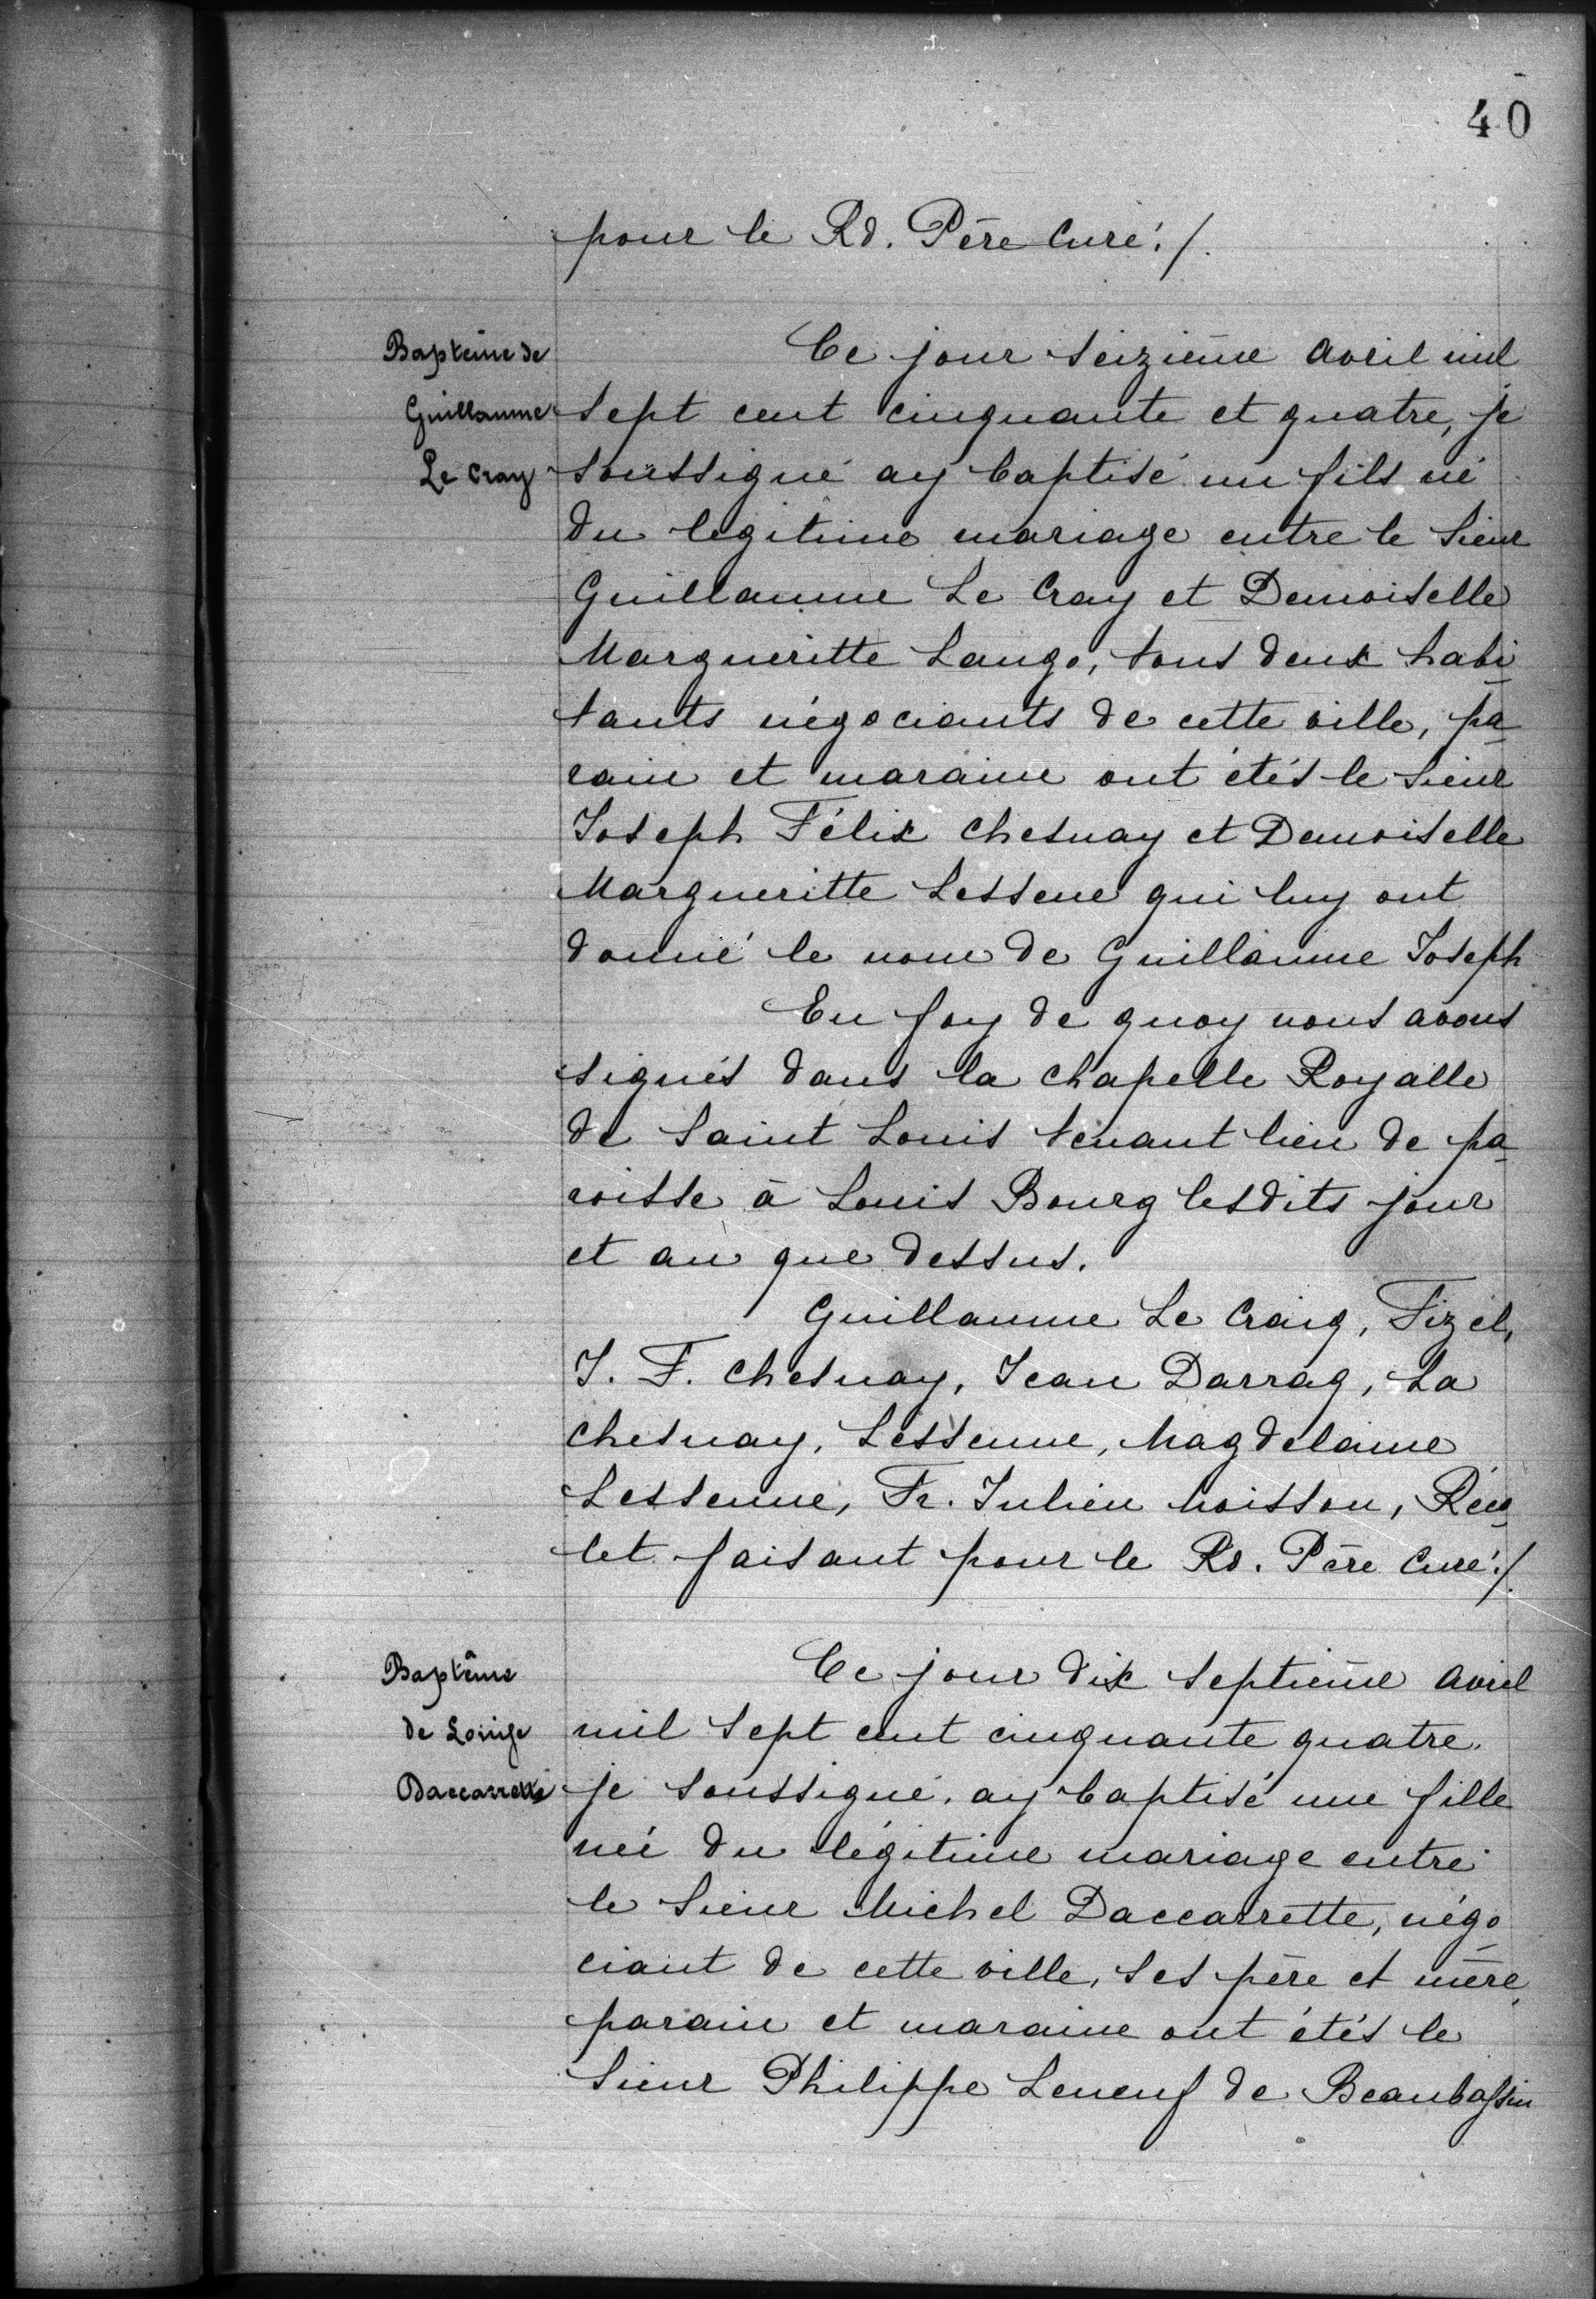 40
pour le Rd. Père Curé./.
Baptême de
Guillaume
Le Cray
Ce jour seizième avril mil
sept cent cinquante et quatre, je
soussigné ay baptisé un fils né
du legitime mariage entre le Sieur
Guillaume Le Cray et Demoiselle
Margueritte Lango, tous deux habi
tants négociants de cette ville, pa
rain et maraine ont étés le Sieur
Joseph Félix Chesnay et Demoiselle
Margueritte Lessene qui luy ont
donné le nom de Guillaume Joseph
En foy de quoy nous avons
signés dans la chapelle Royalle
de Saint Louis tenant lieu de pa
roisse à Louis Bourg lesdits jour
et an que dessus.
Guillaume Le Craig, Fizel,
J. F. Chesnay, Jean Darrag, La
Chesnay, Lessenne, Magdelaine
Lessenne, Fr. Julien Moisson, Réco
let faisant pour le Rd. Père Curé./.
Baptême
de Louise
Daccarrette
Ce jour dix septième avril
mil sept cent cinquante quatre.
je soussigné, ay baptisé une fille
née du légitime mariage entre
le Sieur Michel Daccarrette, négo
ciant de cette ville, ses père et mère,
parain et maraine ont étés le
Sieur Philippe Leneuf de Beaubassin